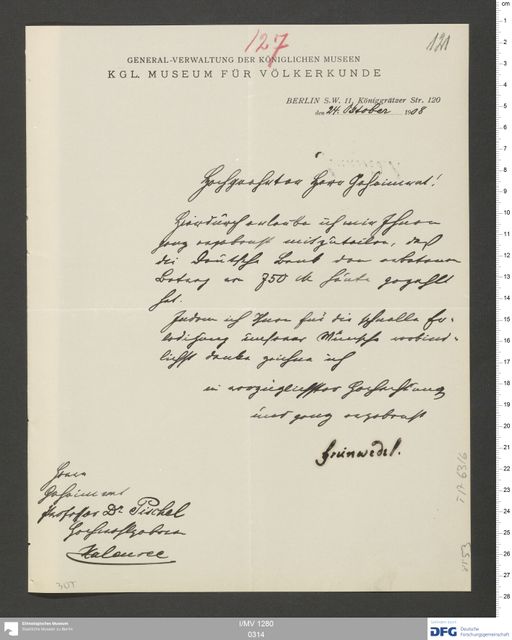 127
121
GENERAL-VERWALTUNG DER KÖNIGLICHEN MUSEEN
KGL. MUSEUM FÜR VÖLKERKUNDE
BERLIN S.W. 11, Königgrätzer Str. 120
den 24. Oktober 1908
Hochgeehrter Herr Geheimrat!
Hierdurch erlaube ich mir Ihnen
ganz ergebenst mitzuteilen, daß
die Deutsche Bank den erbetenen
Betrag von 750 M heute gezahlt
hat.
Indem ich Ihnen für die schnelle Er-
ledigung unserer Wünsche verbind-
lichst danke zeichne ich
in vorzüglichster Hochachtung
und ganz ergebenst
Grünwedel.
Herrn
Geheimrat
Professor Dr. Pischel
Hochwohlgeboren
Halensee
I/MV 1280
0314
Ethnologisches Museum
Staatliche Museen zu Berlin
DFG Deutsche
Forschungsgemeinschaft
cm
1
2
3
4
5
6
7
8
9
10
11
12
13
14
15
16
17
18
19
20
21
22
23
24
25
26
27
28